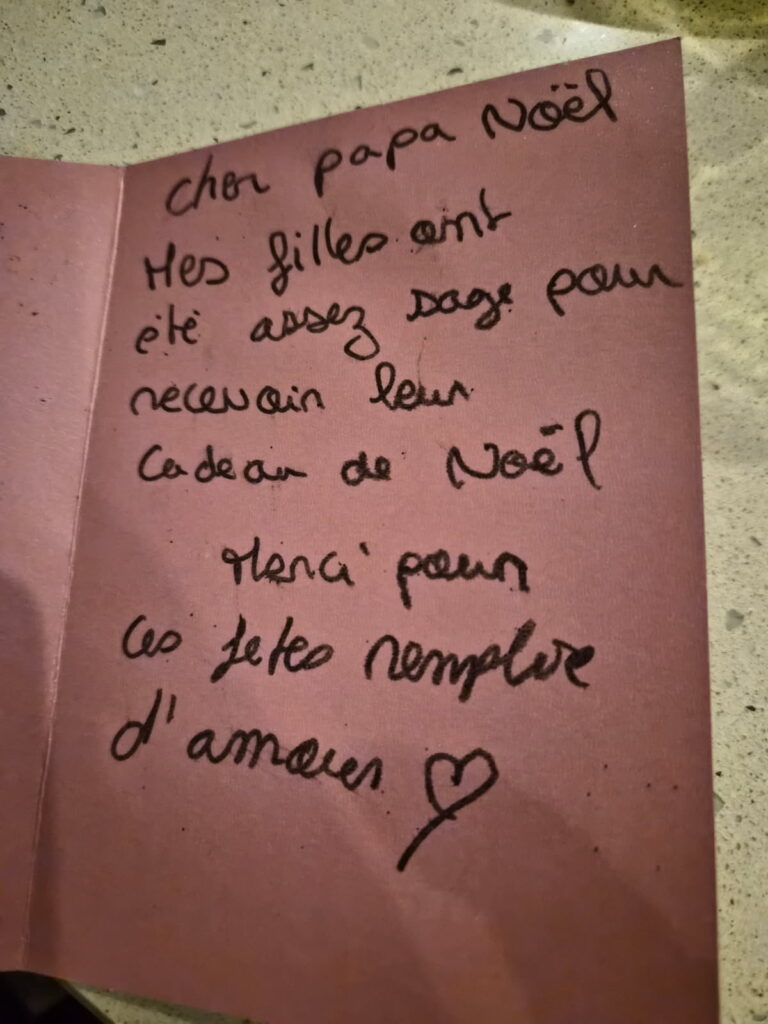 Cher papa Noël
Mes filles ont
été assez sage pour
recevoir leur
Cadeau de Noël
Merci pour
Ces fetes remplie
d'amour